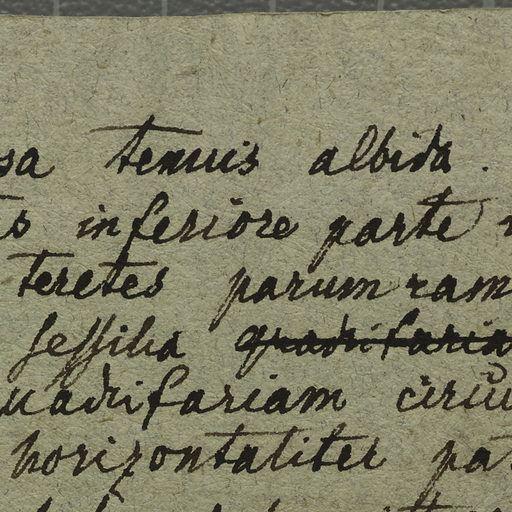 sa tenuis albida.
is inferiore parte
teretes parum ram
sessilia quadrifaria
uadrifariam circu
horizontaliter pa